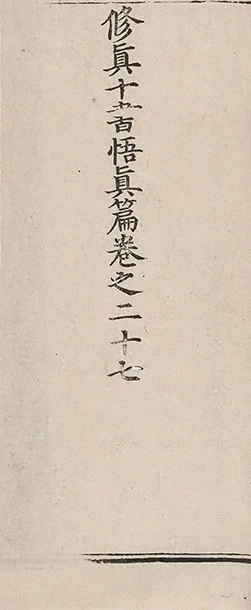 修真十書悟真篇卷之二十七